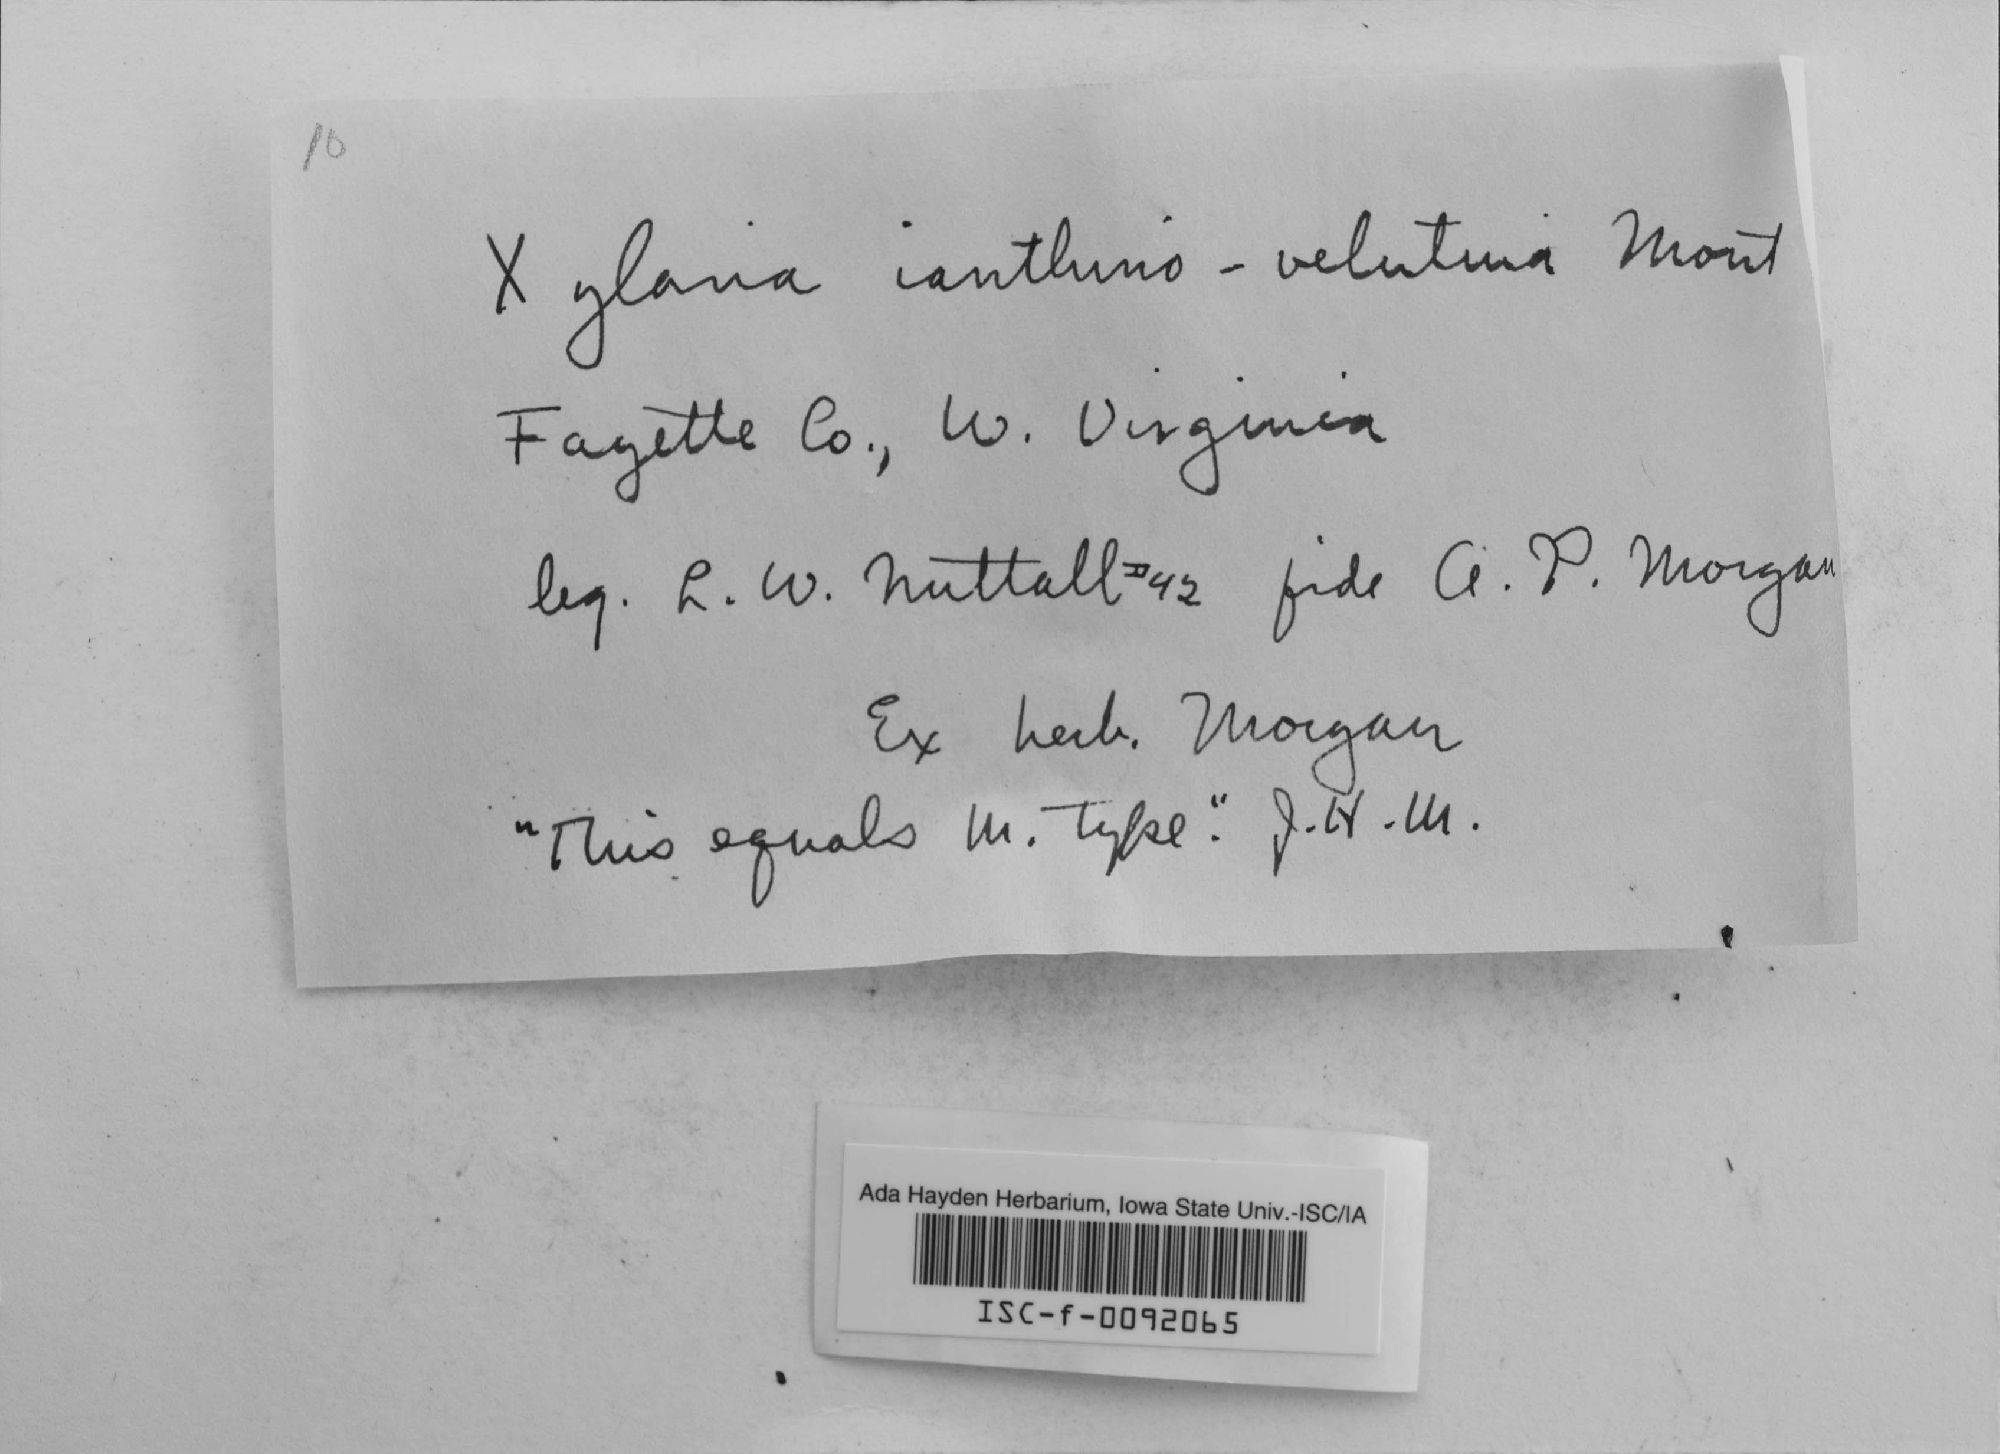 10
Xylaria ianthino-velutina Mont
Fayette Co., W. Virginia
leg. L. W. Nuttall #42 fide A. P. Morgan
Ex herb. Morgan
"This equals M. type". J.H.M.
Ada Hayden Herbarium, Iowa State Univ.-ISC/IA
ISC-f-0092065